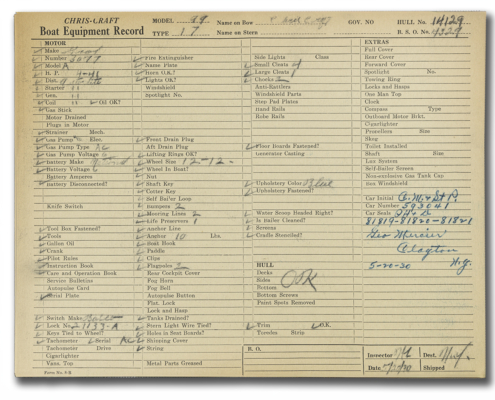 CHRIS-CRAFT
Boat Equipment Record
MODEL 99
TYPE 17
Name on Bow
Name on Stern
GOV. NO
HULL No. 14129
R. S. O. No. 4329
MOTOR
Make
Number
Model A
H. P.
Dist.
Starter 11
Gen. 11
Coil 11 Oil OK?
Gas Stick
Motor Drained
Plugs in Motor
Strainer Mech.
Gas Pump Elec.
Gas Pump Type
Gas Pump Voltage 6
Battery Make
Battery Voltage 6
Battery Amperes
Battery Disconnected?
Knife Switch
Tool Box Fastened?
Tools
Gallon Oil
Crank
Pilot Rules
Instruction Book
Care and Operation Book
Service Bulletins
Autopulse Card
Serial Plate
Switch Make
Lock No. 21133-A
Keys Tied to Wheel?
Tachometer Serial
Tachometer Drive
Cigarlighter
Vans. Top
Form No. 8-B
Fire Extinguisher
Name Plate
Horn O.K.?
Lights OK?
Windshield
Spotlight No.
Fores Drain Plug
Aft Drain Plug
Lifting Rings OK?
Wheel Size 12-12-
Wheel In Boat?
Nut
Shaft Key
Cotter Key
Self Bailer Loop
Bumpers 2
Mooring Lines 2
Life Preservers
Anchor Line
Anchor 10 Lbs.
Boat Hook
Paddle
Clips
Flagpoles 2
Rear Cockpit Cover
Fog Horn
Fog Bell
Autopulse Button
Flat. Lock
Lock and Hasp
Tanks Drained?
Stern Light Wire Tied?
Holes in Seat Boards?
Shipping Cover
String
Metal Parts Greased
Side Lights Glass
Small Cleats 4
Large Cleats
Chocks
Anti-Rattlers
Windshield Parts
Step Pad Plates
Hand Rails
Robe Rails
Floor Boards Fastened?
Generator Casting
Upholstery Color Blue
Upholstery Fastened?
Water Scoop Headed Right?
Is Bailer Cleated?
Screens
Cradle Stenciled?
HULL
Decks
Sides
Bottom
OK
Bottom Screws
Paint Spots Removed
Trim O.K.
Toredos Strip
R. O.
EXTRAS
Full Cover
Rear Cover
Forward Cover
Spotlight No.
Towing Ring
Locks and Hasps
One Man Top
Clock
Compass Type
Outboard Motor Brkt.
Cigarlighter
Propellers Size
Skeg
Toilet Installed
Shaft Size
Lux System
Self-Bailer Screen
Non-explosive Gas Tank Cap
Sun Windshield
Car Initial C. M. & St. P.
Car Number 593041
Car Seals
81819-81820-81821
Geo Mercier
Clayton
N.Y.
5-20-30
Inspector
Dest.
Date
Shipped